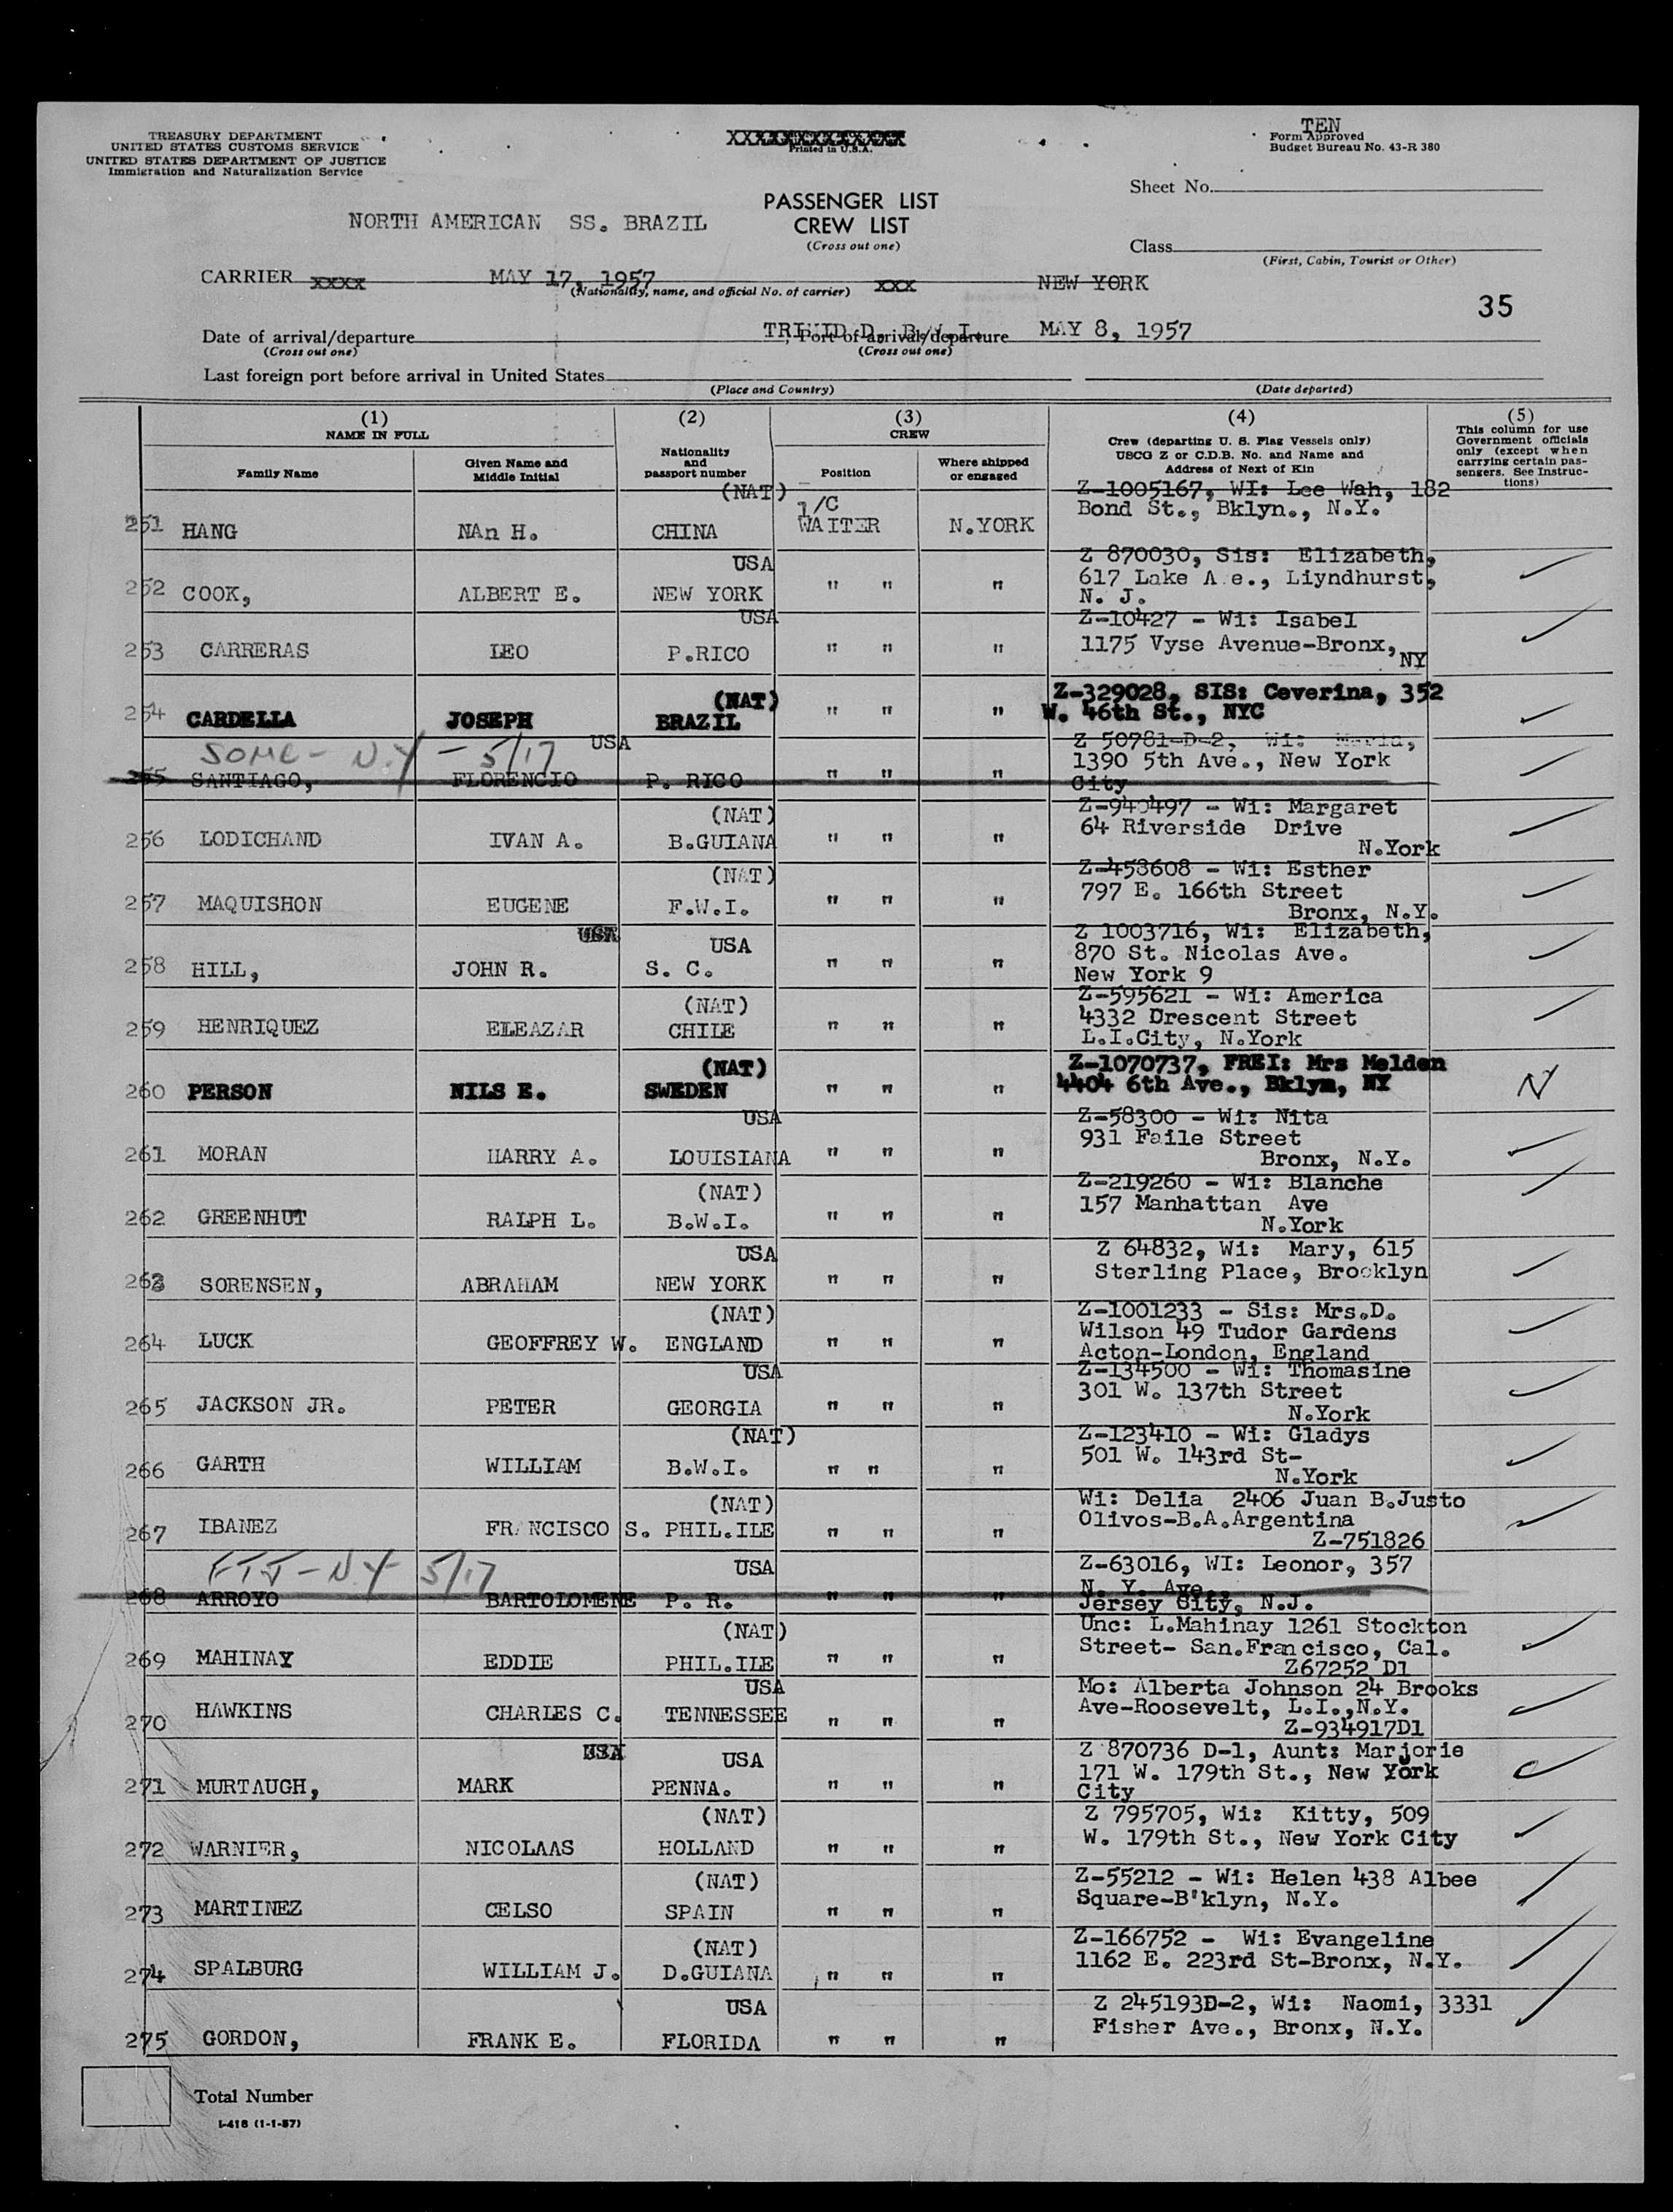 TREASURY DEPARTMENT
UNITED STATES CUSTOMS SERVICE
UNITED STATES DEPARTMENT OF JUSTICE
Immigration and Naturalization Service
Printed in U.S.A.
TEN
Form Approved
Budget Bureau No. 43-R 380
Sheet No.
PASSENGER LIST
CREW LIST
(Cross out one)
NORTH AMERICAN SS. BRAZIL
Class
(First, Cabin, Tourist or Other)
CARRIER XXXX MAY 17, 1957 XXX NEW YORK
(Nationality, name, and official No. of carrier)
35
Date of arrival/departure , Port of arrival/departure MAY 8, 1957
(Cross out one) (Cross out one)
Last foreign port before arrival in United States
(Place and Country) (Date departed)
(1) (2) (3) (4) (5)
NAME IN FULL
Family Name
Given Name and Middle Initial
Nationality and passport number
CREW
Position
Where shipped or engaged
Crew (departing U. S. Flag Vessels only)
USCG Z or C.D.B. No. and Name and
Address of Next of Kin
This column for use
Government officials
only (except when
carrying certain pas-
sengers. See Instruc-
tions)
(NAT) 1/C Z-1005167, WI: Lee Wah, 182
251 HANG NAn H. CHINA WAITER N.YORK Bond St., Bklyn., N.Y.
USA Z 870030, Sis: Elizabeth,
617 Lake A e., Liyndhurst,
252 COOK, ALBERT E. NEW YORK " " " N. J.
USA Z-10427 - Wi: Isabel
253 CARRERAS LEO P.RICO " " " 1175 Vyse Avenue-Bronx,
NY
(NAT) Z-329028, SIS: Ceverina, 352
254 CARDELLA JOSEPH BRAZIL " " " W. 46th St., NYC
N.Y - 5/17 USA Z 50781-D-2, Wi:
1390 5th Ave., New York
255 SANTIAGO, FLORENCIO P. RICO " " " City
(NAT) Wi: Margaret
64 Riverside Drive
256 LODICHAND IVAN A. B.GUIANA " " " N.York
(NAT) Z-453608 - Wi: Esther
797 E. 166th Street
257 MAQUISHON EUGENE F.W.I. " " " Bronx, N.Y.
USA USA Z 1003716, Wi: Elizabeth,
870 St. Nicolas Ave.
258 HILL, JOHN R. S. C. " " " New York 9
(NAT) Z-595621 - Wi: America
4332 Drescent Street
259 HENRIQUEZ ELEAZAR CHILE " " " L.I.City, N.York
(NAT) Z-1070737, FREI: Mrs Melden
260 PERSON NILS E. SWEDEN " " " 4404 6th Ave., Bklyn, NY N
USA Z-58300 - Wi: Nita
931 Faile Street
261 MORAN HARRY A. LOUISIANA " " " Bronx, N.Y.
(NAT) Z-219260 - Wi: Blanche
157 Manhattan Ave
262 GREENHUT RALPH L. B.W.I. " " " N.York
USA Z 64832, Wi: Mary, 615
263 SORENSEN, ABRAHAM NEW YORK " " " Sterling Place, Brooklyn
(NAT) Z-1001233 - Sis: Mrs.D.
Wilson 49 Tudor Gardens
264 LUCK GEOFFREY W. ENGLAND " " " Acton-London, England
USA Z-134500 - Wi: Thomasine
301 W. 137th Street
265 JACKSON JR. PETER GEORGIA " " " N.York
(NAT) Z-123410 - Wi: Gladys
501 W. 143rd St-
266 GARTH WILLIAM B.W.I. " " " N.York
(NAT) Wi: Delia 2406 Juan B.Justo
Olivos-B.A.Argentina
267 IBANEZ FRANCISCO S. PHIL.ILE " " " Z-751826
FTJ - N.Y 5/17 USA Z-63016, WI: Leonor, 357
N. Y. Ave.,
268 ARROYO BARTOLOMENE P. R. " " " Jersey City, N.J.
(NAT) Unc: L.Mahinay 1261 Stockton
Street- San.Francisco, Cal.
269 MAHINAY EDDIE PHIL.ILE " " " Z67252 D1
USA Mo: Alberta Johnson 24 Brooks
Ave-Roosevelt, L.I.,N.Y.
270 HAWKINS CHARLES C. TENNESSEE " " " Z-934917D1
USA USA Z 870736 D-1, Aunt: Marjorie
171 W. 179th St., New York
271 MURTAUGH, MARK PENNA. " " " City
(NAT) Z 795705, Wi: Kitty, 509
272 WARNIER, NICOLAAS HOLLAND " " " W. 179th St., New York City
(NAT) Z-55212 - Wi: Helen 438 Albee
273 MARTINEZ CELSO SPAIN " " " Square-B'klyn, N.Y.
(NAT) Z-166752 - Wi: Evangeline
274 SPALBURG WILLIAM J. D.GUIANA " " " 1162 E. 223rd St-Bronx, N.Y.
USA Z 245193D-2, Wi: Naomi, 3331
275 GORDON, FRANK E. FLORIDA " " " Fisher Ave., Bronx, N.Y.
Total Number
I-418 (1-1-57)